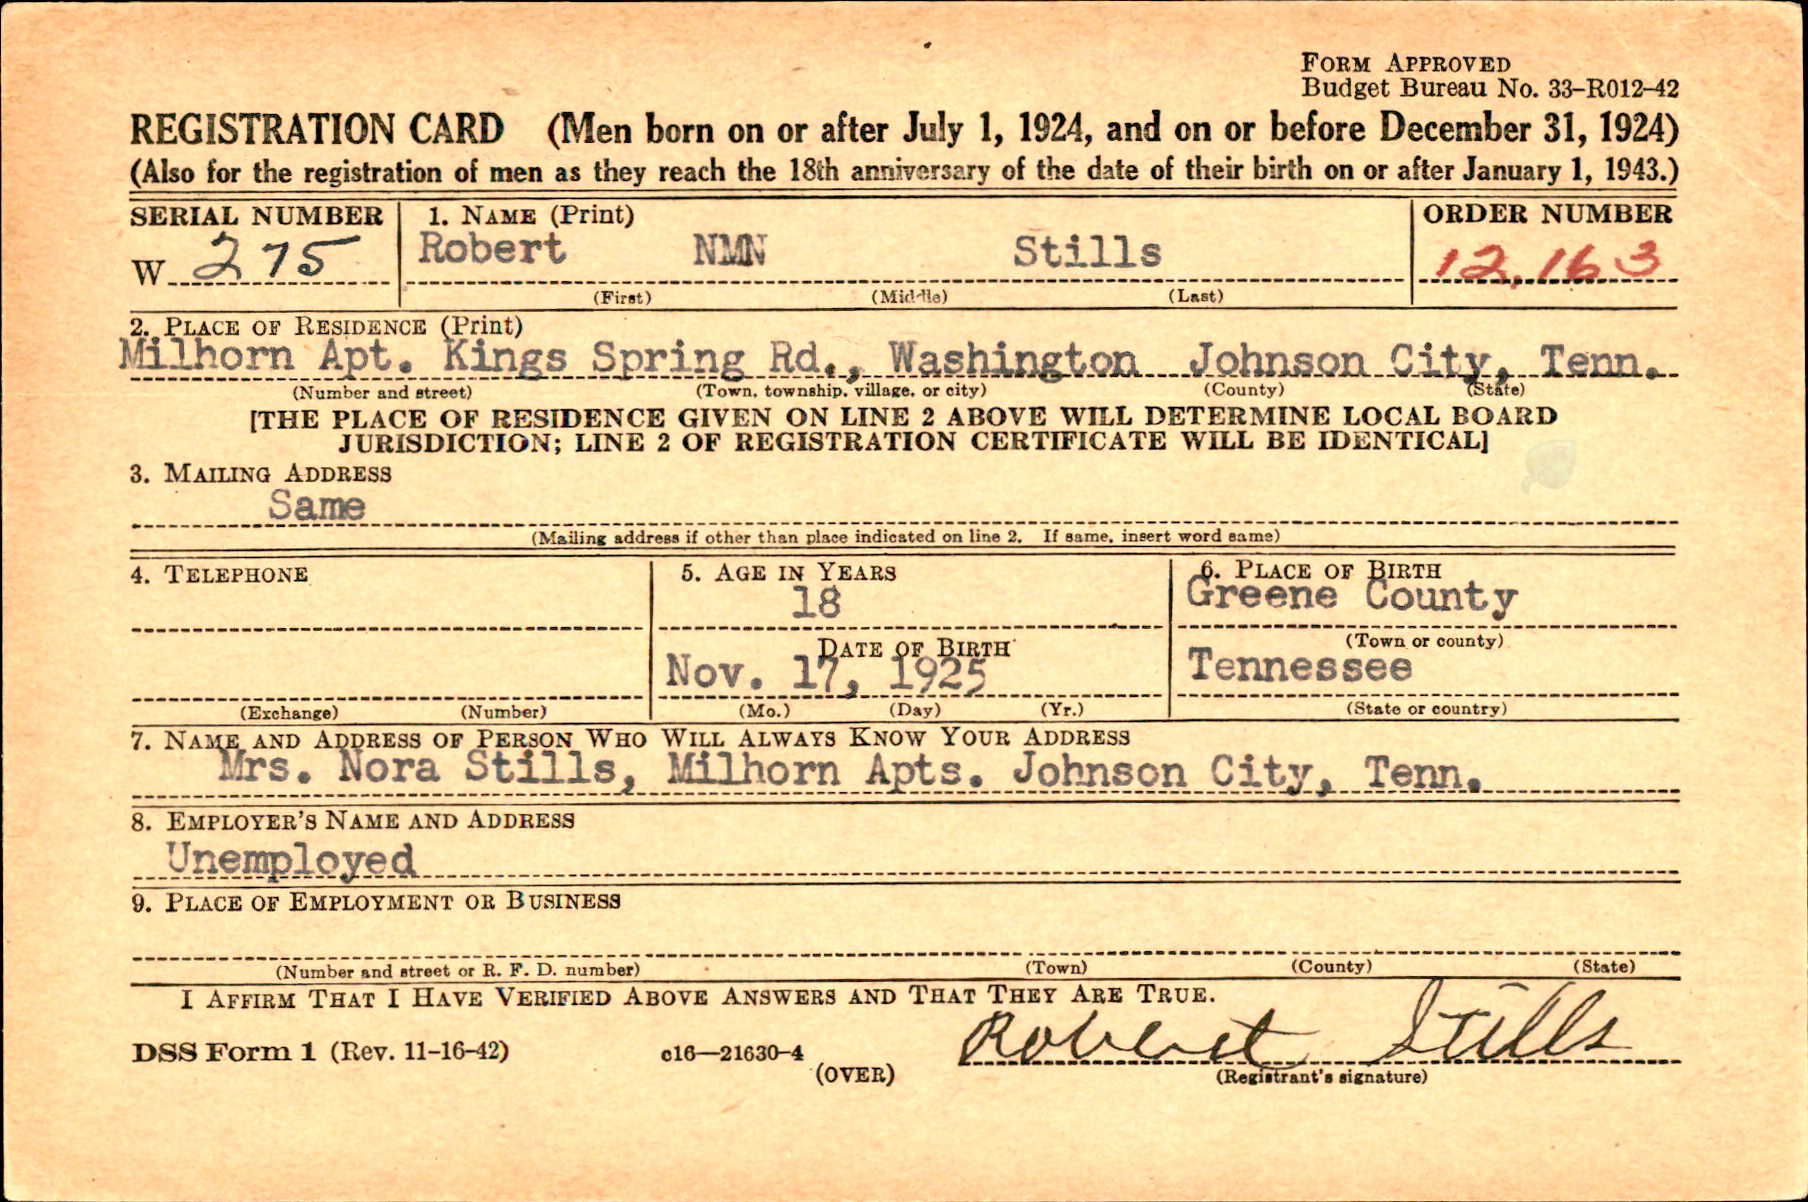 FORM APPROVED
Budget Bureau No. 33–R012–42
REGISTRATION CARD (Men born on or after July 1, 1924, and on or before December 31, 1924)
(Also for the registration of men as they reach the 18th anniversary of the date of their birth on or after January 1, 1943.)
SERIAL NUMBER 1. NAME (Print) ORDER NUMBER
W 275 Robert NMN Stills 12,163
(First) (Middle) (Last)
2. PLACE OF RESIDENCE (Print)
Milhorn Apt. Kings Spring Rd., Washington Johnson City, Tenn.
(Number and street) (Town, township, village, or city) (County) (State)
[THE PLACE OF RESIDENCE GIVEN ON LINE 2 ABOVE WILL DETERMINE LOCAL BOARD
JURISDICTION; LINE 2 OF REGISTRATION CERTIFICATE WILL BE IDENTICAL]
3. MAILING ADDRESS
Same
(Mailing address if other than place indicated on line 2. If same, insert word same)
4. TELEPHONE 5. AGE IN YEARS 6. PLACE OF BIRTH
18 Greene County
DATE OF BIRTH (Town or county)
Nov. 17, 1925 Tennessee
(Exchange) (Number) (Mo.) (Day) (Yr.) (State or country)
7. NAME AND ADDRESS OF PERSON WHO WILL ALWAYS KNOW YOUR ADDRESS
Mrs. Nora Stills, Milhorn Apts. Johnson City, Tenn.
8. EMPLOYER'S NAME AND ADDRESS
Unemployed
9. PLACE OF EMPLOYMENT OR BUSINESS
(Number and street or R. F. D. number) (Town) (County) (State)
I AFFIRM THAT I HAVE VERIFIED ABOVE ANSWERS AND THAT THEY ARE TRUE.
Robert Stills
DSS Form 1 (Rev. 11–16–42) c16—21630–4 (OVER) (Registrant's signature)